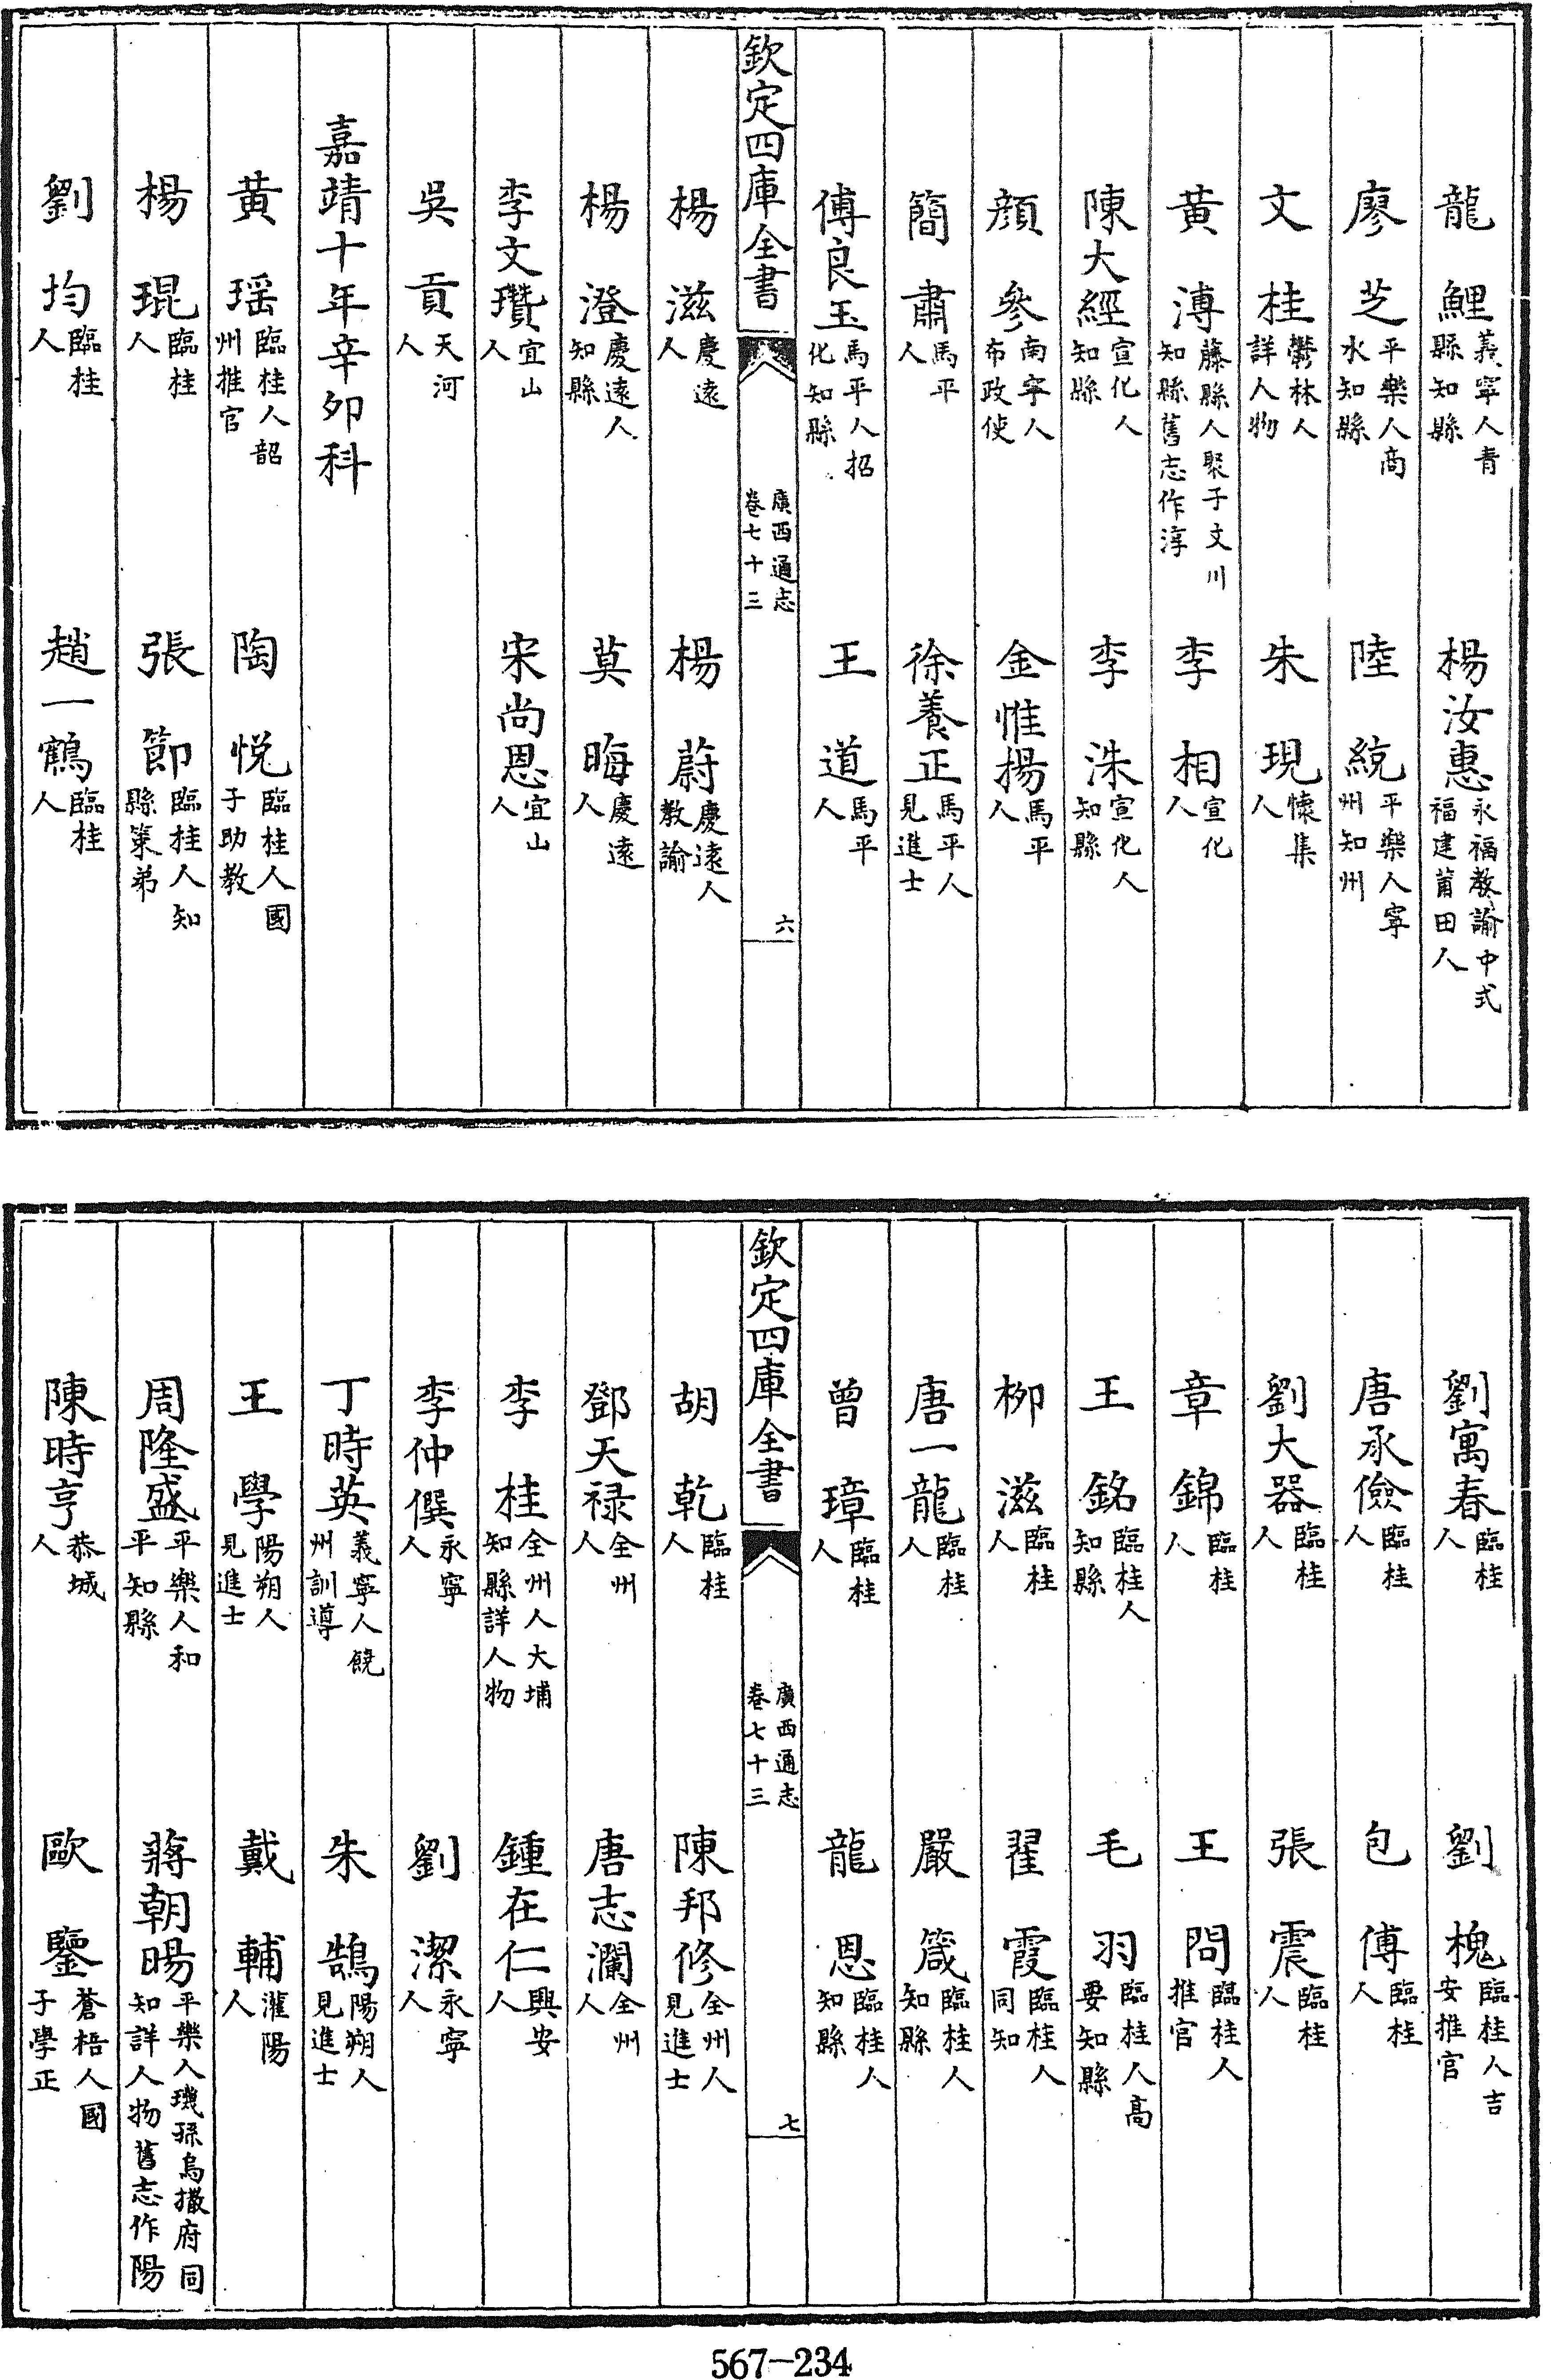 龍鯉義寧人青縣知縣　楊汝惠永福教諭中式福建莆田人
廖芝平樂人商水知縣　陸統平樂人寧州知州
文桂鬱林人詳人物　朱現懷集人
黃溥藤縣人聚子文川知縣舊志作淳　李相宣化人
陳大經宣化人知縣　李洙宣化人知縣
顔參南寧人布政使　金惟揚馬平人
簡肅馬平人　徐養正馬平人見進士
傅良玉馬平人招化知縣　王道馬平人
欽定四庫全書　廣西通志卷七十三　六
楊滋慶遠人　楊蔚慶遠人教諭
楊澄慶遠人知縣　莫晦慶遠人
李文瓚宜山人　宋尚恩宜山人
吳貢天河人
嘉靖十年辛卯科
黃瑶臨桂人韶州推官　陶悦臨桂人國子助教
楊琨臨桂人　張節臨桂人知縣策弟
劉均臨桂人　趙一鶴臨桂人
劉寓春臨桂人　劉槐臨桂人吉安推官
唐承儉臨桂人　包傅臨桂人
劉大器臨桂人　張震臨桂人
章錦臨桂人　王問臨桂人推官
王銘臨桂人知縣　毛羽臨桂人高要知縣
柳滋臨桂人　翟霞臨桂人同知
唐一龍臨桂人　嚴箴臨桂人知縣
曾璋臨桂人　龍恩臨桂人知縣
欽定四庫全書　廣西通志卷七十三　七
胡乾臨桂人　陳邦修全州人見進士
鄧天禄全州人　唐志瀾全州人
李桂全州人大埔知縣詳人物　鍾在仁興安人
李仲僎永寧人　劉潔永寧人
丁時英義寧人饒州訓導　朱鵠陽朔人見進士
王學陽朔人見進士　戴輔灌陽人
周隆盛平樂人和平知縣　蔣朝暘平樂人璣孫烏撒府同知詳人物舊志作陽
陳時亨恭城人　歐鑒蒼梧人國子學正
567-234